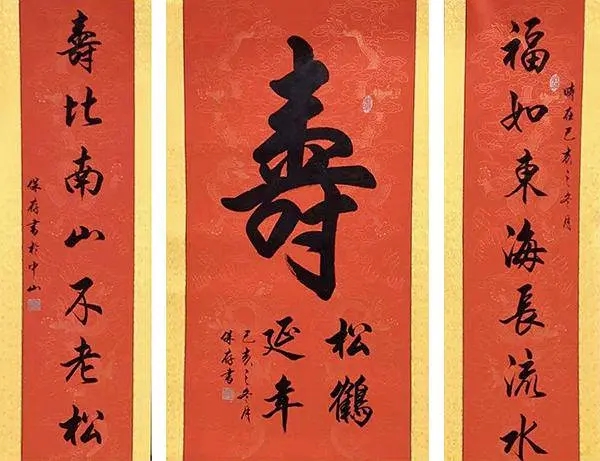 福如東海長流水
時在己亥之冬月
壽
松鶴
延年
己亥之冬月
保存書
壽比南山不老松
保存書於中山